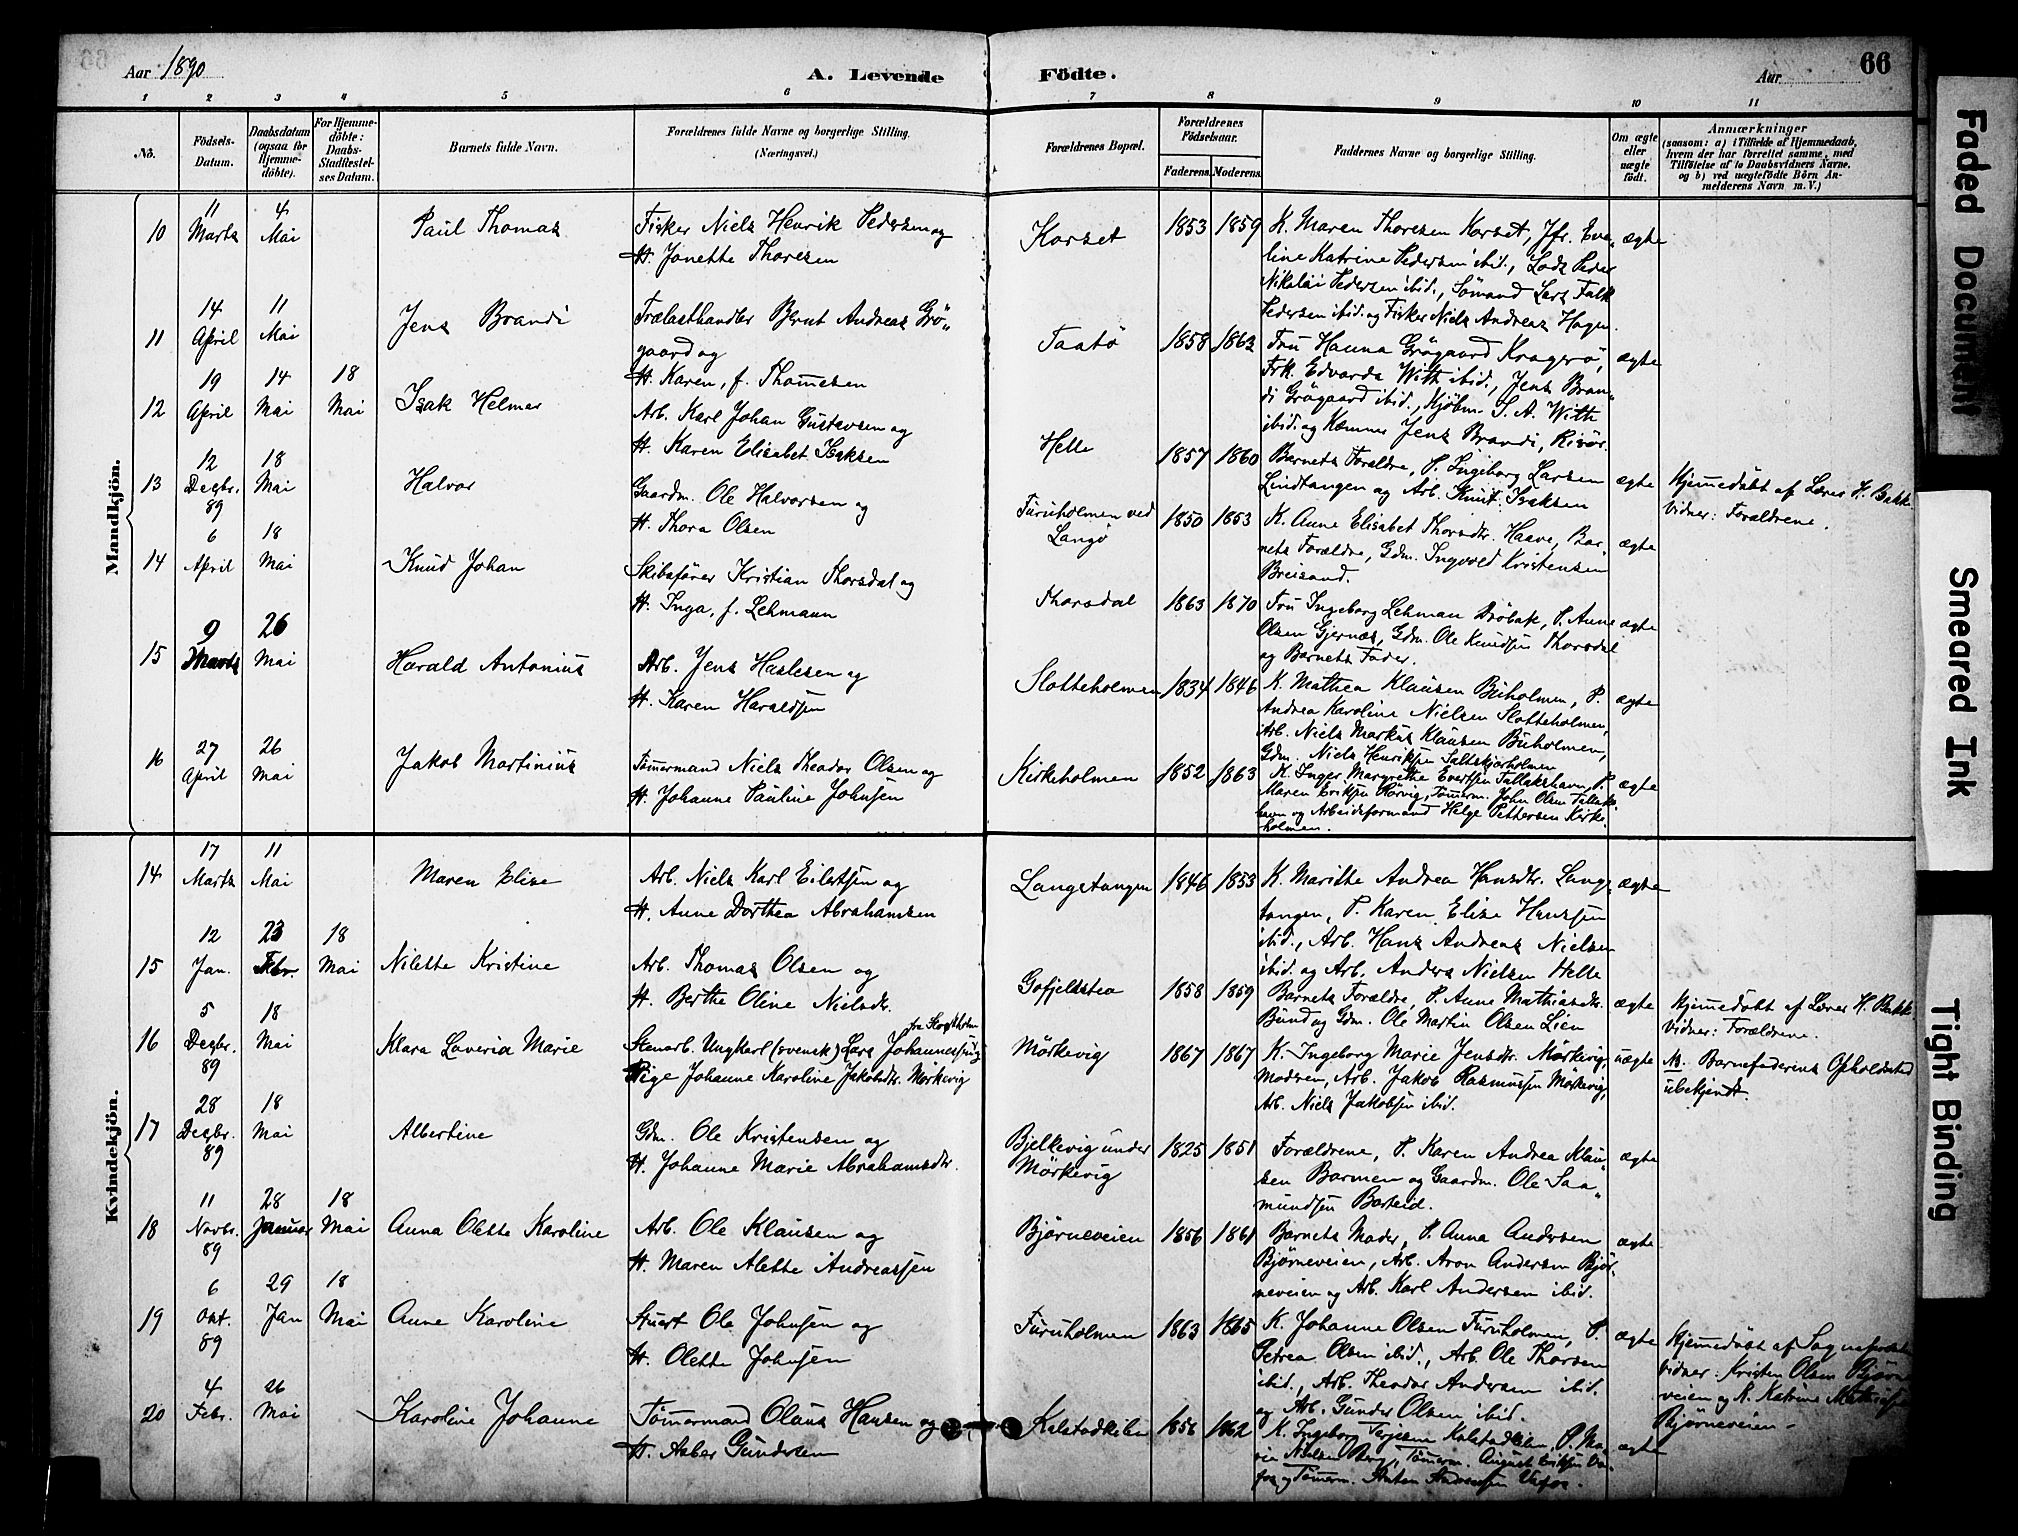 Aar 1890
A. Levende Födte.
Aar
66
1 2 3 4 5 6 7 8 9 10 11
No.
Födsels-Datum.
Daabsdatum (ogsaa for Hjemme-döbte).
For Hjemme-döbte: Daabs-Stadfæstel-ses Datum.
Barnets fulde Navn.
Forældrenes fulde Navne og borgerlige Stilling.
(Næringsvei.)
Forældrenes Bopæl.
Forældrenes Födselsaar.
Faderens. Moderens.
Faddernes Navne og borgerlige Stilling.
Om ægte eller uægte födt.
Anmærkninger
(saasom: a) i Tilfælde af Hjemmedaab,
hvem der har forrettet samme, med
Tilföielse af to Daabsvidners Navne,
og b) ved uægtefödte Börn An-
melderens Navn m. V.)
Mandkjön.
10 11 Marts 4 Mai Paul Thomas
Fisker Niels Henrik Pedersen og
H. Janette Thoresen
Korset 1853 1859
K. Maren Thoresen Korset, Jfr. Eve-
line Katrine Pedersen ibid., Lods Peder
Nikolai Pedersen ibid., Sömand Lars Falk
Pedersen ibid. og Fisker Niels Andreas Hagen.
ægte
11 14 April 11 Mai Jens Brandi
Trælasthandler Bernt Andreas Grö-
gaard og
H. Karen, f. Thomesen
Taatö 1858 1862
Fru Hanna Grögaard Kragerö,
Frk. Edvarda With ibid., Jens Bran-
di Grögaard ibid., Kjöbm. S. A. With
ibid. og Kæmner Jens Brandi, Risör.
ægte
12 19 April 14 Mai 18 Mai Isak Helmer
Arb. Karl Johan Gustavsen og
H. Karen Elisabet Isaksen
Helle 1857 1860
Barnets Forældre, P. Ingeborg Larsen
Lindtangen og Arb. Knut Isaksen
ægte
Hjemedöbt af Lærer H. Bakk
Vidner: Forældrene.
13 12 Decbr. 89 18 Mai Halvor
Gaardm. Ole Halvorsen og
H. Thora Olsen
Furuholmen ved
Langö
1850 1853
K. Anne Elisabet Thorsdtr. Haave, Bar-
nets Forældre, Gdm. Ingvold Kristensen
Breisand.
ægte
14 6 April 18 Mai Knud Johan
Skibsförer Kristian Thorsdal og
H. Inga, f. Lehmann
Thorsdal 1863 1870
Fru Ingeborg Lehman Dröbak, P. Anne
Olsen Gjernæs, Gdm. Ole Knudsen Thorsdal
og Barnets Fader.
ægte
15 9 Marts 26 Mai Harald Antonius
Arb. Jens Haslesen og
H. Karen Haraldsen
Slotteholmen 1834 1846
K. Mathea Klausen Buholmen, P.
Andrea Karoline Nielsen Slotteholmen,
Arb. Niels Markus Klausen Buholmen,
Gdm. Niels Henriksen Saltskjærholmen
ægte
16 27 April 26 Mai Jakob Martinius
Tömermand Niels Theodor Olsen og
H. Johanne Pauline Johnsen
Kirkeholmen 1852 1863
K. Inger Margrethe Evertsen Tallakshavn, P.
Maren Eriksen Rörvig, Tömerm. John Olsen Tallaks-
havn og Arbeidsformand Helge Pettersen Kirke-
holmen.
ægte
Kvindekjön.
14 17 Marts 11 Mai Maren Elise
Arb. Niels Karl Eilertsen og
H. Anne Dorthea Abrahamsen
Langetangen 1846 1853
K. Marithe Andrea Hansdtr. Lang-
tangen, P. Karen Elise Hanssen
ibid., Arb. Hans Andreas Nielsen
ibid. og Arb. Anders Nielsen Helle
ægte
15 12 Jan. 23 Febr. 18 Mai Nilette Kristine
Arb. Thomas Olsen og
H. Berthe Oline Nielsdtr.
Gofjeldstea 1858 1859
Barnets Forældre, P. Anne Mathiasdtr.
Bund og Gdm. Ole Martin Olsen Lien
ægte
Hjemedöbt af Lærer H. Bakk
Vidner: Forældrene.
16 5 Decbr. 89 18 Mai Klara Laveria Marie
Stenarb. Ungkarl (svensk) Lars Johannessen og
fra Stockholm
Pige Johanne Karoline Jakobsdtr. Mörkevig
Mörkevig 1867 1867
K. Ingeborg Marie Jensdtr. Mörkevig,
Modren, Arb. Jakob Rasmussen Mörkevig,
Arb. Niels Jakobsen ibid.
uægte
M. Barnefaderens Opholdssted
ubekjendt.
17 28 Decbr. 89 18 Mai Albertine
Gdm. Ole Kristensen og
H. Johanne Marie Abrahamsdtr.
Bjelkevig under
Mörkevig
1825 1851
Forældrene, P. Karen Andrea Klau-
sen Barmen og Gaardm. Ole Saa-
mundsen Barteid.
ægte
18 11 Novbr. 89 28 Januar 18 Mai Anna Olette Karoline
Arb. Ole Klausen og
H. Maren Alette Andreassen
Björneveien 1856 1861
Barnets Moder, P. Anna Andersen
Björneveien, Arb. Aron Andersen Björ-
neveien og Arb. Karl Andersen ibid.
ægte
19 6 Okt. 89 29 Jan 18 Mai Anne Karoline
Stuert Ole Johnsen og
H. Olette Johnsen
Furuholmen 1863 1865
K. Johanne Olsen Furuholmen, P.
Petrea Olsen ibid., Arb. Ole Thorsen
ibid., Arb. Theodor Andersen ibid.
og Arb. Gunder Olsen ibid.
ægte
Hjemedöbt af Sognepræst
Vidner: Kristen Olsen Björne
veien og K. Katrine
Björneveien.
20 4 Febr. 26 Mai Karoline Johanne
Tömermand Olaus Hansen og
H. Asber Gundersen
Kalstadkilen 1856 1862
K. Ingeborg Terjesen Kalstadkilen, P. Ma-
rie Nielsen Berg, Tömerm. August Eriksen Va-
fos og Tömerm. Anton Andersen Vafos.
ægte
Faded Document
Smeared Ink
Tight Binding